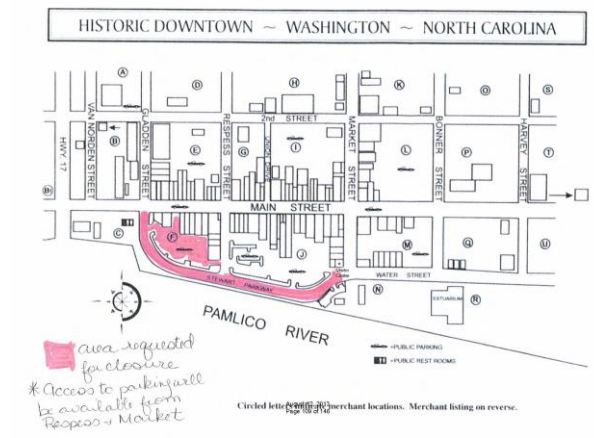 HISTORIC DOWNTOWN ~ WASHINGTON ~ NORTH CAROLINA
A
D
H
K
O
S
2nd STREET
HWY. 17
VAN NORDEN STREET
GLADDEN STREET
RESPESS STREET
UNION DRIVE
MARKET STREET
BONNER STREET
HARVEY STREET
B
E
G
I
L
P
T
MAIN STREET
C
F
J
M
Q
U
STEWART PARKWAY
WATER STREET
N
ESTUARIUM
R
PAMLICO RIVER
=PUBLIC PARKING
=PUBLIC REST ROOMS
area requested
for closure
* Access to parking will
be available from
Respess + Market
August 2013
Page 109 of 146
Circled letters indicate merchant locations. Merchant listing on reverse.